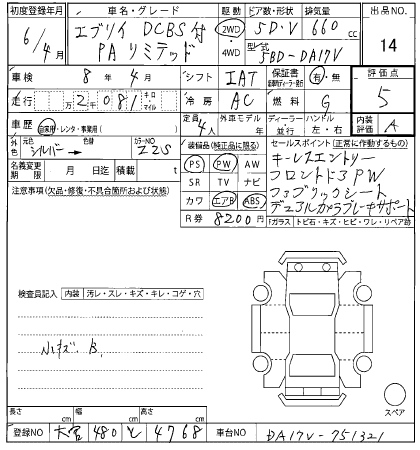 初度登録年月 車名・グレード 駆動 ドア数・形状 排気量 出品NO.
6/4月 エブリイ DCBS付 2WD 5D・V 660cc 14
PAリミテッド ・4WD 型式 5BD-DA17V
車検 8年4月 シフト IAT 保証書 有・無 評価点
走行 万2千081 キロ・マイル 冷房 AC 燃料 G 5
車歴 自家用・レンタ・事業用( ) 定員 4人 外車モデル 年 ディーラー・並行 ハンドル 左・右 内装評価 A
外色 元色 シルバー→ 色替 カラーNO Z2S 装備品(純正品に限る) セールスポイント(正常に作動するもの)
名義変更期限 月 日迄 積載 t PS PW AW キーレスエントリー
注意事項(欠品・修復・不具合箇所および状態) SR TV ナビ フロントドアPW
カワ エアB ABS ファブリックシート
R券 8200円 デュアルカメラブレーキサポート
Fガラス トビ石・キズ・ヒビ・ワレ・リペア跡
検査員記入 内装 汚レ・スレ・キズ・キレ・コゲ・穴
小キズ. B.
スペア
長さ cm 幅 cm 高さ cm
登録NO 大宮 480 と 4768 車台NO DA17V-751321